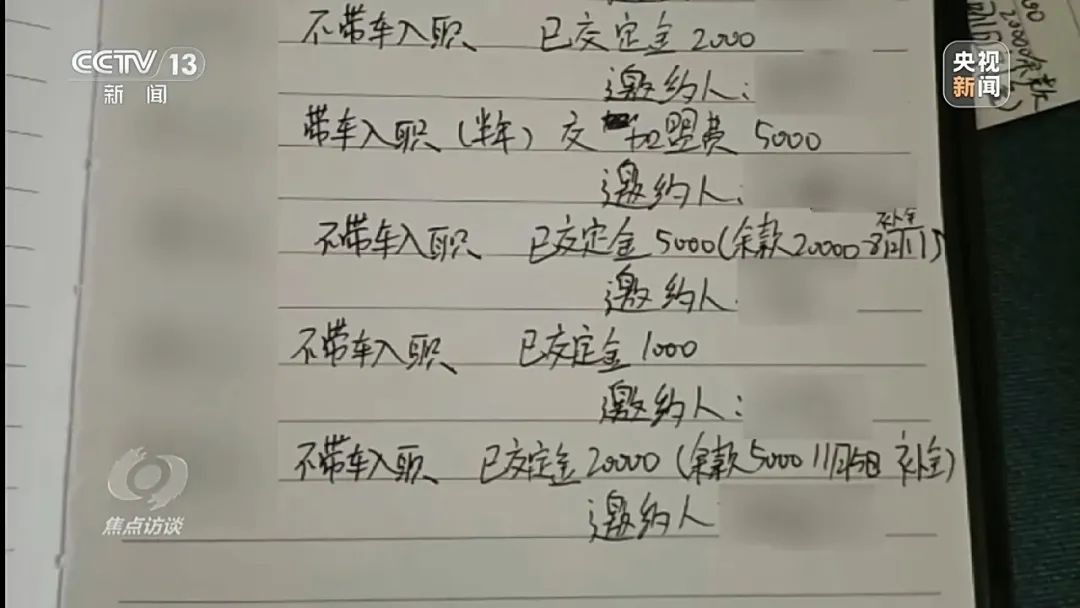 CCTV 13
新闻
央视
新闻
不带车入职 已交定金 2000
邀约人：
带车入职（半年）交 加盟费 5000
邀约人：
补全
不带车入职 已交定金 5000（余款20000
邀约人
不带车入职 已交定金 1000
邀约人：
不带车入职 已交定金20000（余款5000 11月5日 补全）
邀约人
焦点访谈